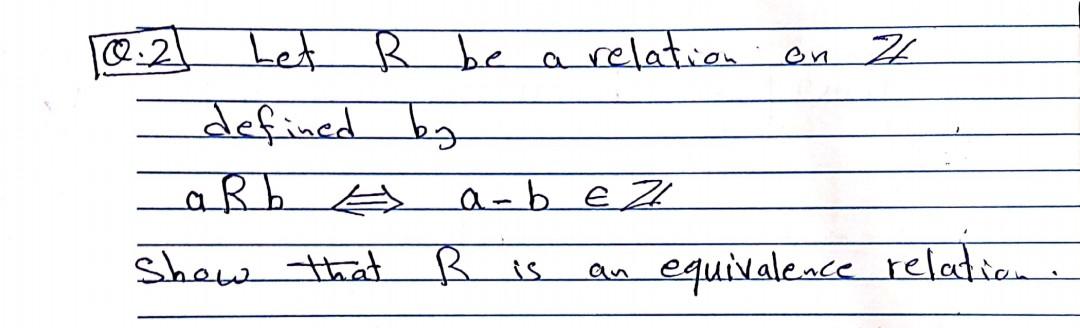 Q.2 Let R be a relation on ℤ
defined by
a R b ⟺ a - b ∈ ℤ
Show that R is an equivalence relation.